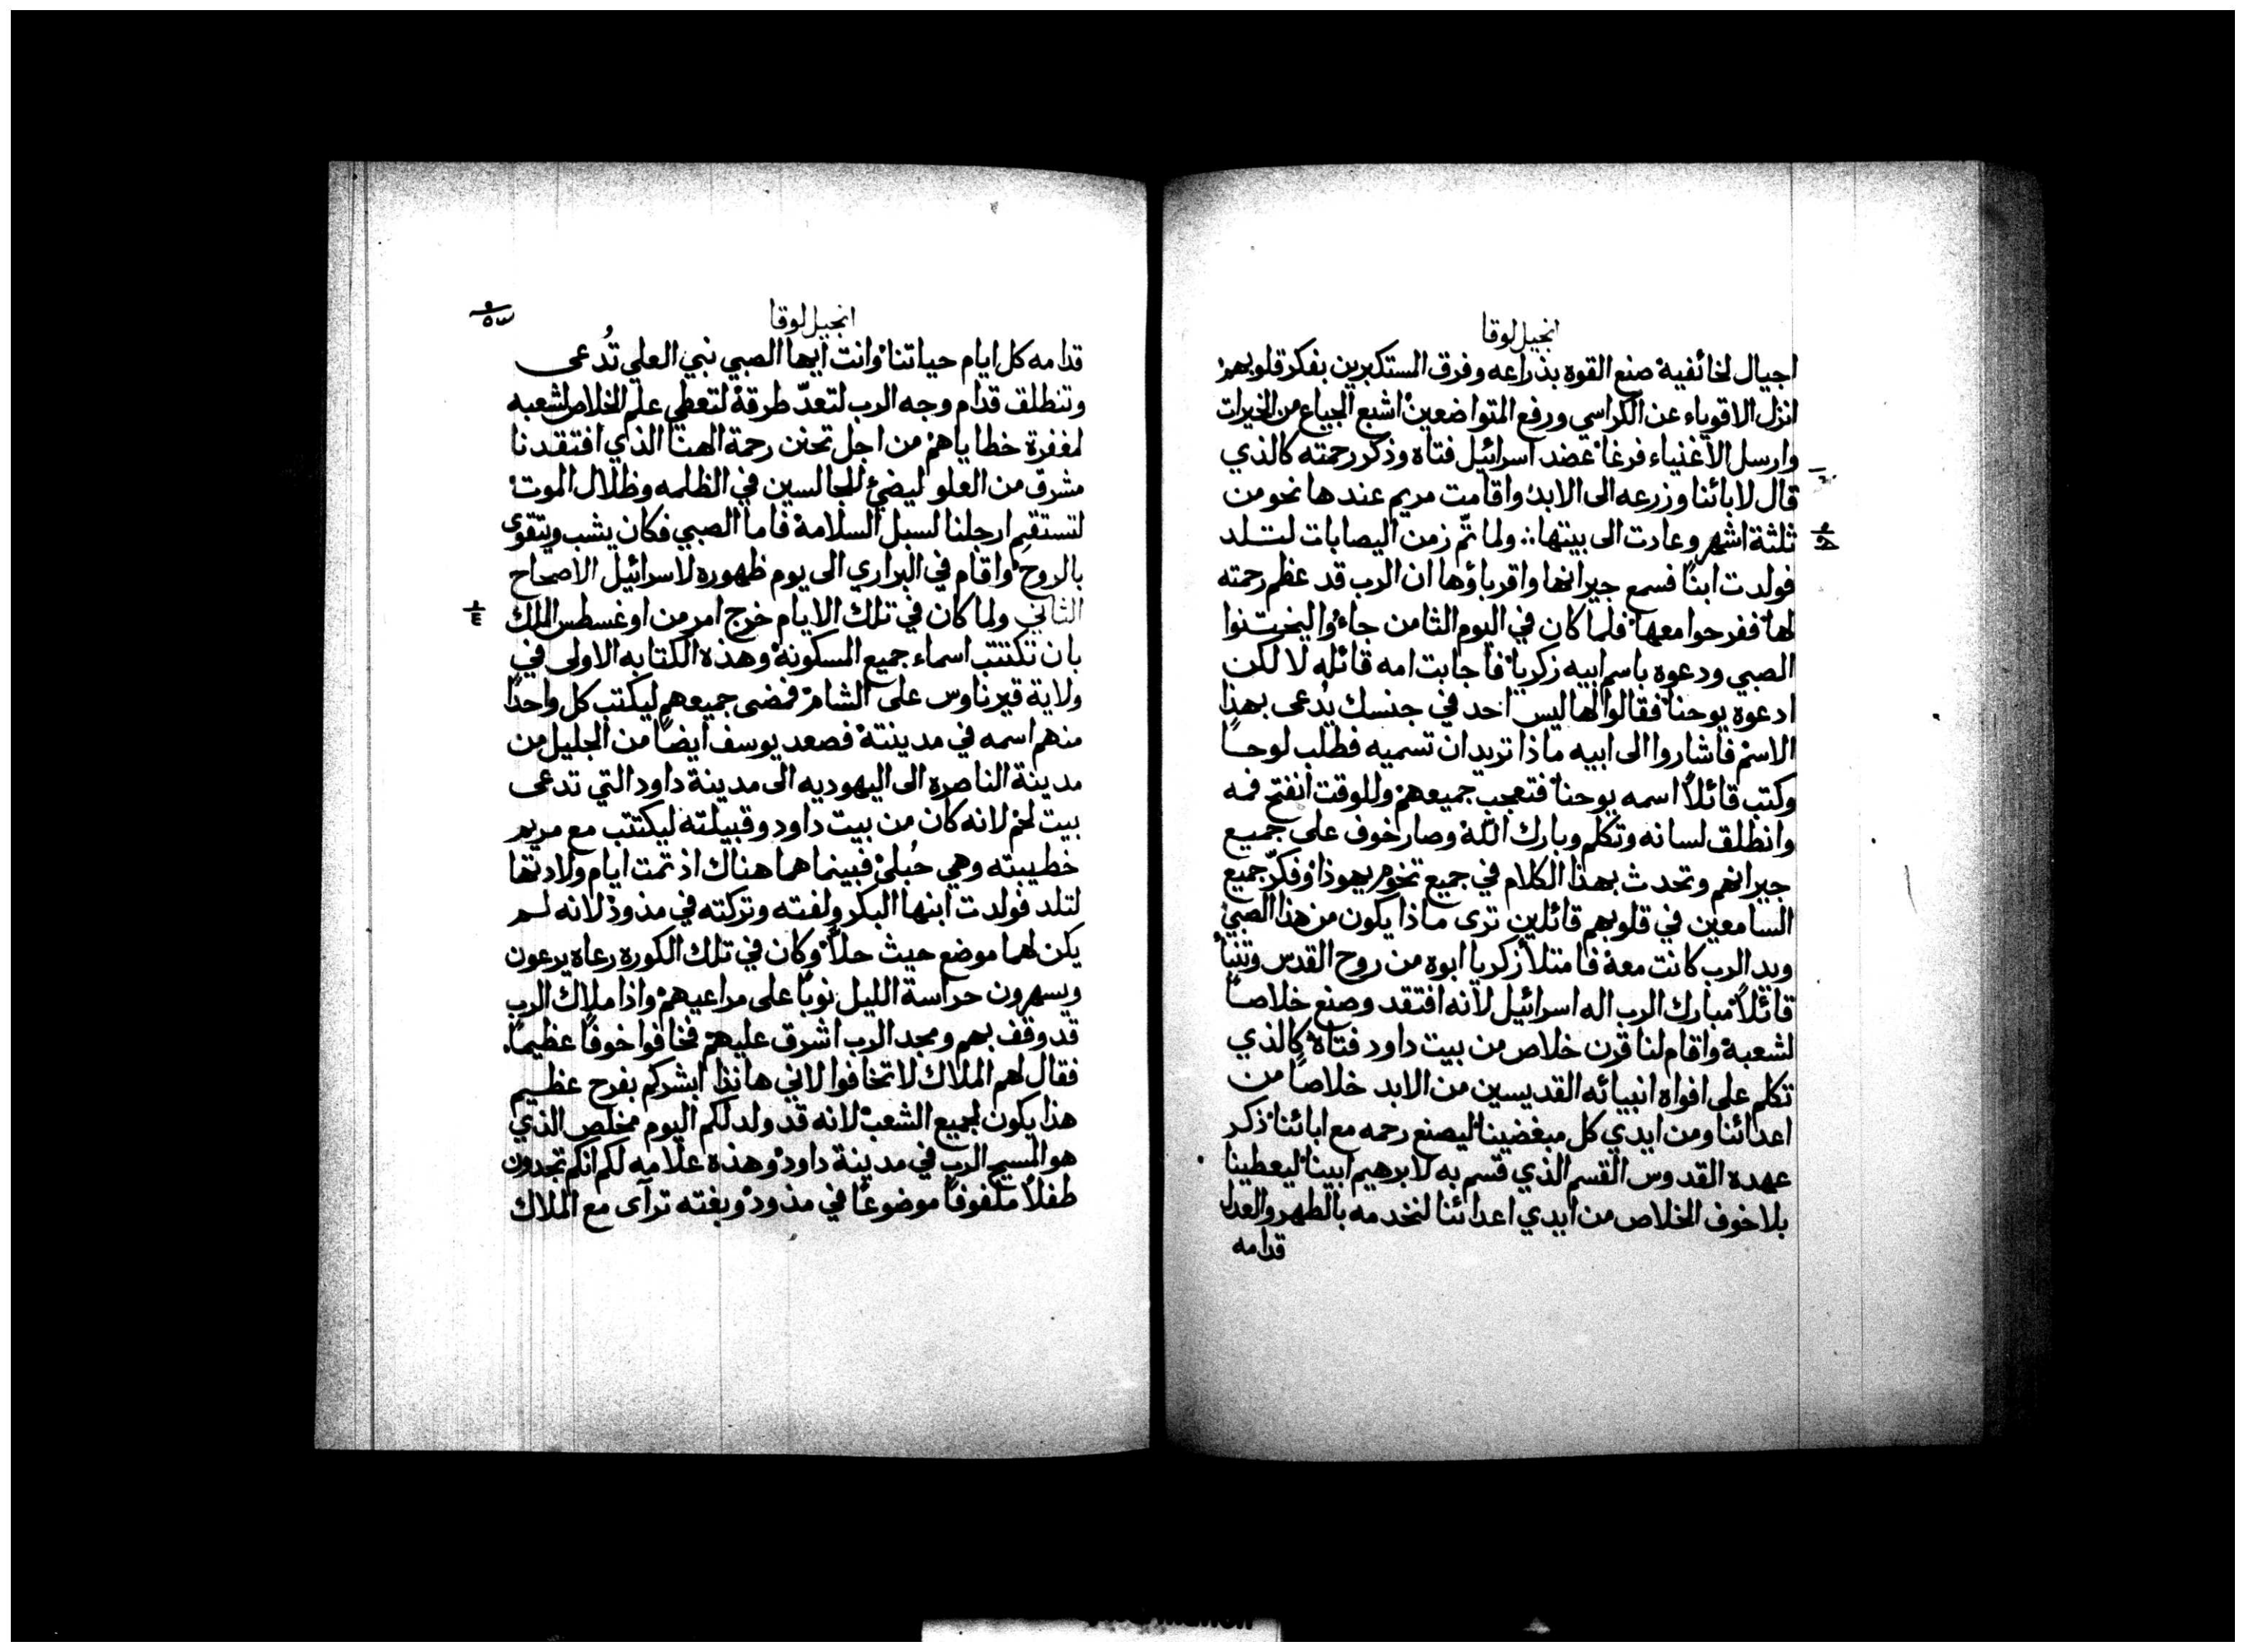 انجيل لوقا
اجيال لخائفيه صنع القوه بذراعه وفرق المستكبرين بفكر قلوبهم
انزل الاقوياء عن الكراسي ورفع المتواضعين اشبع الجياع من الخيرات
وارسل الاغنياء فرغا عضد اسرائيل فتاه وذكر رحمته كالذي
قال لابائنا وزرعه الى الابد واقامت مريم عندها نحو من
ثلثة اشهر وعادت الى بيتها ∴ ولما تمّ زمن اليصابات لتلد
فولدت ابنًا فسمع جيرانها واقرباؤها ان الرب قد عظم رحمته
لها ففرحوا معها فلما كان في اليوم الثامن جاءُوا ليختنوا
الصبي ودعوه باسم ابيه زكريا فاجابت امه قائله لا لكن
ادعوه يوحنا فقالوا لها ليس احد في جنسك يُدعى بهذا
الاسم فاشاروا الى ابيه ماذا تريد ان تسميه فطلب لوحًا
وكتب قائلاً اسمه يوحنا فتعجب جميعهم وللوقت انفتح فمه
وانطلق لسانه وتكلم وبارك اللّه وصار خوف على جميع
جيرانهم وتحدث بهذا الكلام في جميع تخوم يهوذا وفكّر جميع
السامعين في قلوبهم قائلين ترى ماذا يكون من هذا الصبي
ويد الرب كانت معه فامتلأ زكريا ابوه من روح القدس وتنبأ
قائلاً مبارك الرب اله اسرائيل لانه افتقد وصنع خلاصًا
لشعبه واقام لنا قرن خلاص من بيت داود فتاه كالذي
تكلم على افواه انبيائه القديسين من الابد خلاصًا من
اعدائنا ومن ايدي كل مبغضينا ليصنع رحمه مع ابائنا ذكر
عهده القدوس القسم الذي قسم به لابرهيم ابينا ليعطينا
بلا خوف الخلاص من ايدي اعدائنا لنخدمه بالطهر والعدل
قدامه
انجيل لوقا
قدامه كل ايام حياتنا وانت ايها الصبي نبي العلي تُدعى
وتنطلق قدام وجه الرب لتعدّ طرقه لتعطي علم الخلاص لشعبه
لمغفرة خطاياهم من اجل تحنن رحمة الهنا الذي افتقدنا
مشرق من العلو ليضئ للجالسين في الظلمه وظلال الموت
لتستقيم ارجلنا لسبل السلامة فاما الصبي فكان يشب ويتقوى
بالروح واقام في البراري الى يوم ظهوره لاسرائيل الاصحاح
الثاني ولما كان في تلك الايام خرج امر من اوغسطس الملك
بان تكتتب اسماء جميع المسكونة وهذه الكتابه الاولى في
ولاية قيرناوس على الشام فمضى جميعهم ليكتب كل واحدًا
منهم اسمه في مدينته فصعد يوسف ايضًا من الجليل من
مدينة الناصره الى اليهوديه الى مدينة داود التي تدعى
بيت لحم لانه كان من بيت داود وقبيلته ليكتتب مع مريم
خطيبته وهي حُبلى فبينما هما هناك اذ تمت ايام ولادتها
لتلد فولدت ابنها البكر ولفته وتركته في مذود لانه لم
يكن لهما موضع حيث حلاّ وكان في تلك الكوره رعاه يرعون
ويسهرون حراسة الليل نوبًا على مراعيهم واذا ملاك الرب
قد وقف بهم ومجد الرب اشرق عليهم فخافوا خوفًا عظيمًا.
فقال لهم الملاك لا تخافوا لاني هانذا ابشركم بفرح عظيم
هذا يكون لجميع الشعب لانه قد ولد لكم اليوم مخلص الذي
هو المسيح الرب في مدينة داود وهذه علامه لكم انكم تجدون
طفلاً ملفوفًا موضوعًا في مذود وبغته ترآى مع الملاك